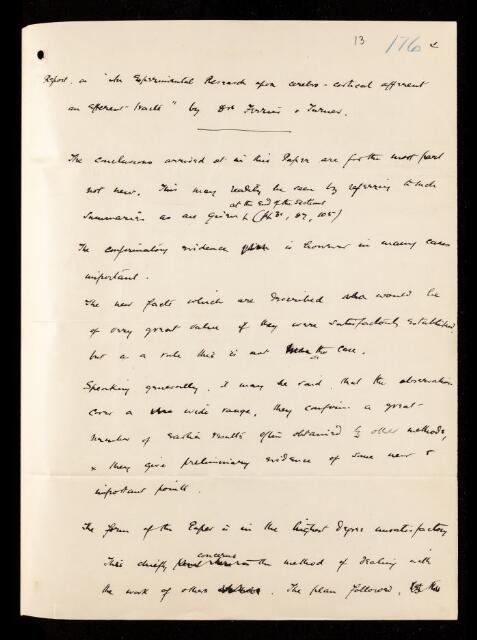 13 176
Report on "An Experimental Research upon cerebro-cortical afferent
an efferent tracts" by Drs Ferrier & Turner.
The conclusions arrived at in this Paper are for the most part
not new. This may readily be seen by referring to such
at the End of the Sections
Summaries as are given (pp 31, 87, 105)
The confirmatory evidence is however in many cases
important.
The new facts which are described would be
of very great value if they were satisfactorily established
but as a rule this is not the case.
Speaking generally, it may be said, that the observations
cover a wide range, they confirm a great
number of earlier results often obtained by other methods,
& they give preliminary evidence of some new &
important points.
The form of the Paper is in the highest degree unsatisfactory
concerns
This chiefly the method of dealing with
the work of others. The plan followed,